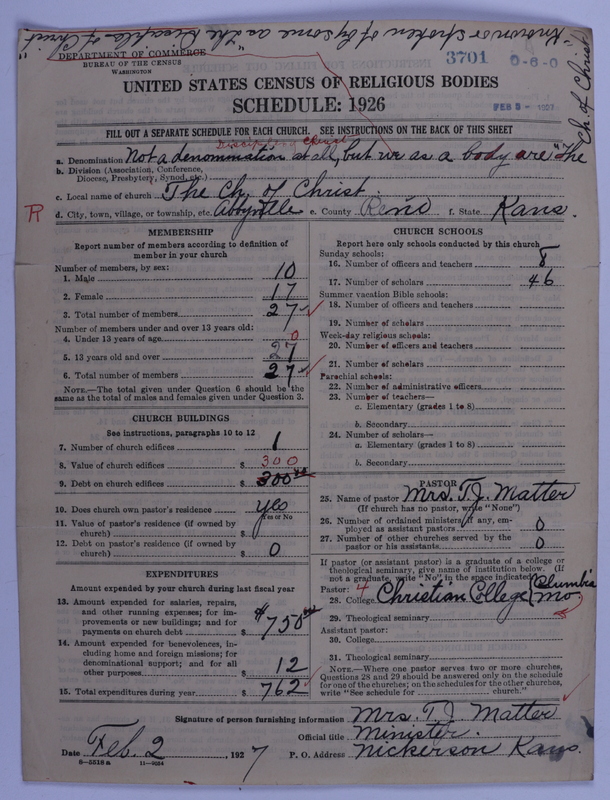 "Known or spoken of by some as the Disciples of Christ"
Ch. of Christ
DEPARTMENT OF COMMERCE
BUREAU OF THE CENSUS
WASHINGTON
3701
0-6-0
UNITED STATES CENSUS OF RELIGIOUS BODIES
SCHEDULE: 1926
FEB 8 - 1927
FILL OUT A SEPARATE SCHEDULE FOR EACH CHURCH. SEE INSTRUCTIONS ON THE BACK OF THIS SHEET
a. Denomination Not a denomination at all, but we as a body are "The
b. Division (Association, Conference,
Diocese, Presbytery, Synod, etc.)
c. Local name of church The Ch. of Christ.
R
d. City, town, village, or township, etc. Abbyville e. County Reno f. State Kans.
MEMBERSHIP
Report number of members according to definition of
member in your church
Number of members, by sex:
1. Male 10
2. Female 17
3. Total number of members 27
Number of members under and over 13 years old:
4. Under 13 years of age 0
5. 13 years old and over 27
6. Total number of members 27
NOTE.—The total given under Question 6 should be the
same as the total of males and females given under Question 3.
CHURCH BUILDINGS
See instructions, paragraphs 10 to 12
7. Number of church edifices 1
8. Value of church edifices $ 300
9. Debt on church edifices $ 300
10. Does church own pastor's residence yes
Yes or No
11. Value of pastor's residence (if owned by
church) $
12. Debt on pastor's residence (if owned by
church) $ 0
EXPENDITURES
Amount expended by church during last fiscal year
13. Amount expended for salaries, repairs,
and other running expenses; for im-
provements or new buildings; and for
payments on church debt $ 750
14. Amount expended for benevolences, in-
cluding home and foreign missions; for
denominational support; and for all
other purposes $ 12
15. Total expenditures during year $ 762
CHURCH SCHOOLS
Report here only schools conducted by this church
Sunday schools:
16. Number of officers and teachers 8
17. Number of scholars 46
Summer vacation Bible schools:
18. Number of officers and teachers
19. Number of scholars
Week-day religious schools:
20. Number of officers and teachers
21. Number of scholars
Parochial schools:
22. Number of administrative officers
23. Number of teachers—
a. Elementary (grades 1 to 8)
b. Secondary
24. Number of scholars—
a. Elementary (grades 1 to 8)
b. Secondary
PASTOR
25. Name of pastor Mrs. T. J. Matter
(If church has no pastor, write "None")
26. Number of ordained ministers, if any, em-
ployed as assistant pastors 0
27. Number of other churches served by the
pastor or his assistants 0
If pastor (or assistant pastor) is a graduate of a college or
theological seminary, give name of institution below. (If
not a graduate, write "No" in the space indicated)
Pastor:
28. College Christian College (Columbia
Mo.
29. Theological seminary
Assistant pastor:
30. College
31. Theological seminary
NOTE.—Where one pastor serves two or more churches,
Questions 28 and 29 should be answered only on the schedule
for one of the churches; on the schedules for the other churches,
write "See schedule for church."
Signature of person furnishing information Mrs. T. J. Matter
Official title Minister.
Date Feb. 2, 1927 P. O. Address Nickerson Kans.
8—5518a 11—9054